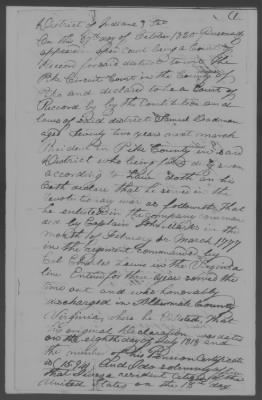 District of Indiana
On the 27th day of October 1820 Personally
appeared open Court being a Court of
Record for said district to wit the
Pike Circuit Court in the County of
Pike and declared to be a Court of
Record by the Constitution and
laws of said district Samuel
aged Seventy two years next march
resident in Pike County in said
District who being first duly sworn
according to Law doth on his
Oath declare that he served in the
revolutionary war as follows That
he entered in the company comman
ded by Captain John Marks in the
month of February or March 1777
in the regiment Commanded by
Col Charles Lewis in the Virginia
line Enterd for three years served the
time out and was honorably
discharged in Albemarle County
Virginia, where he Enlisted, That
his original Declaration was dated
on the eighth day of July 1818 and
the number of his Pension Certificate
is And I do solemnly swear
that I was a resident citizen of the
United States on the 18th day